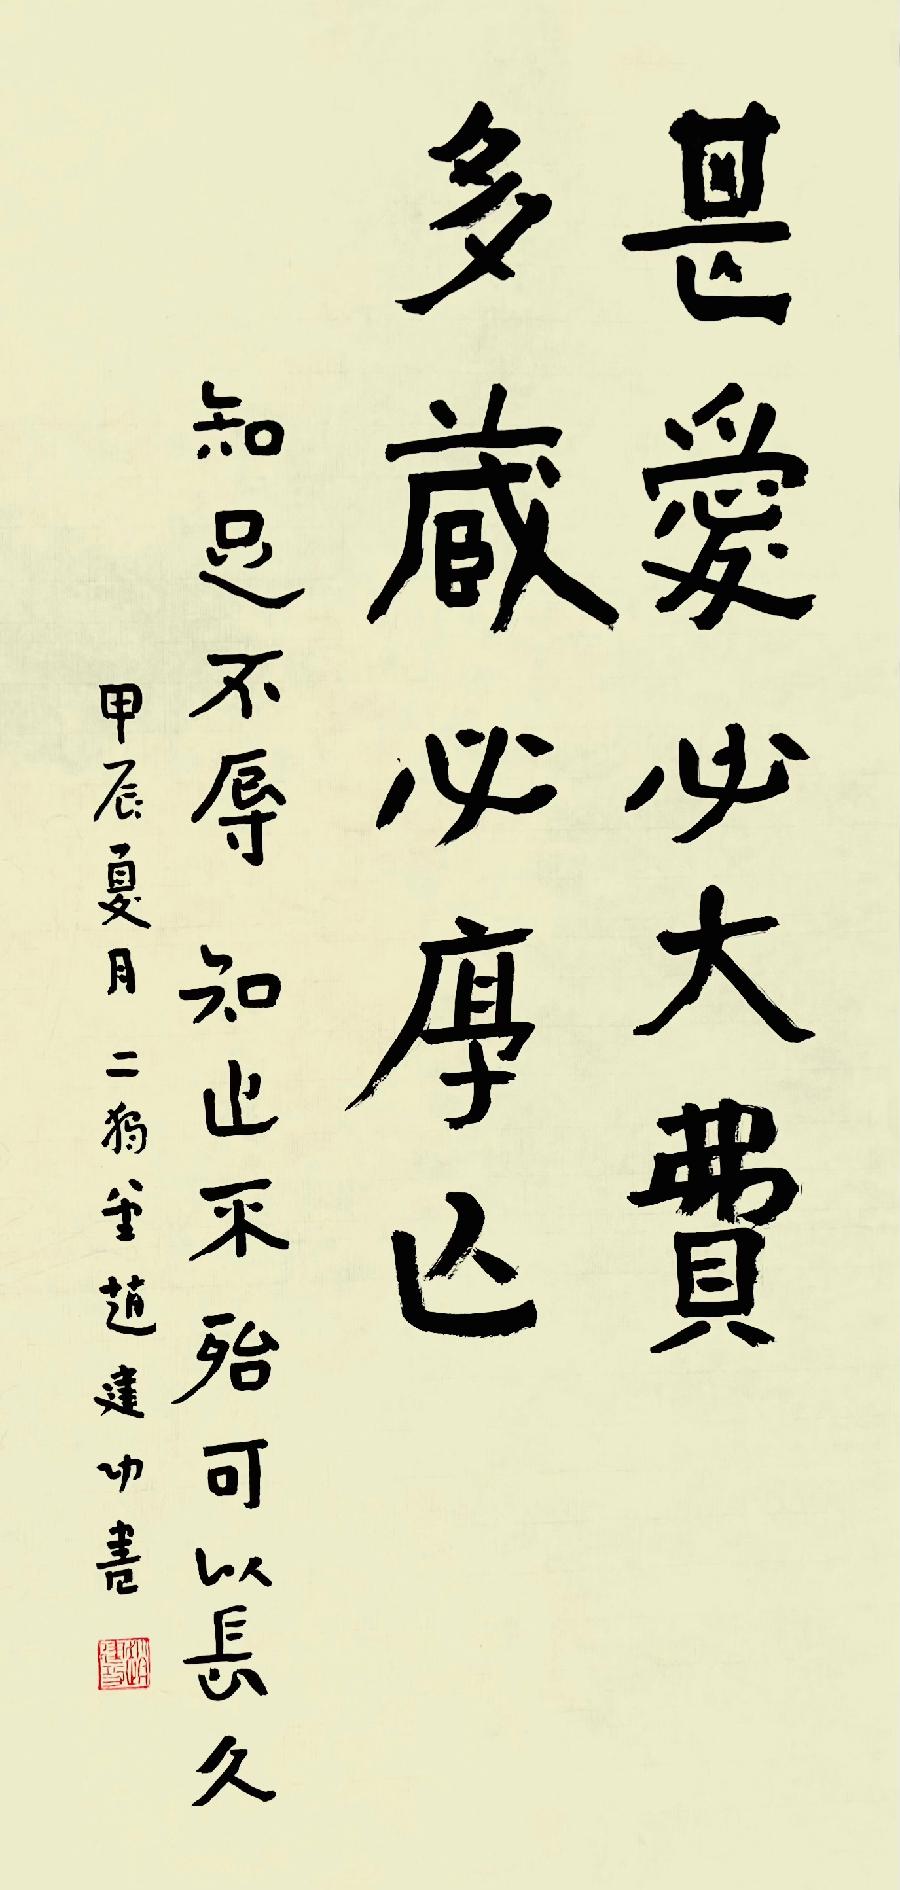 甚愛必大費
多藏必厚亡
知足不辱 知止不殆可以長久
甲辰夏月 二獨堂趙建功書